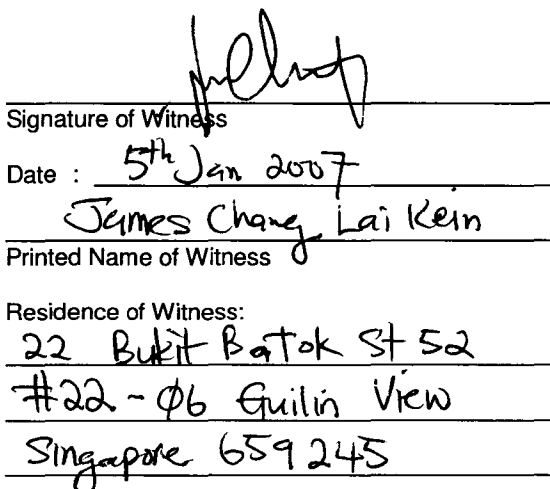 Signature of Witness
Date : 5th Jan 2007
James Chang Lai Kein
Printed Name of Witness
Residence of Witness:
22 Bukit Batok St 52
#22-06 Guilin View
Singapore 659245